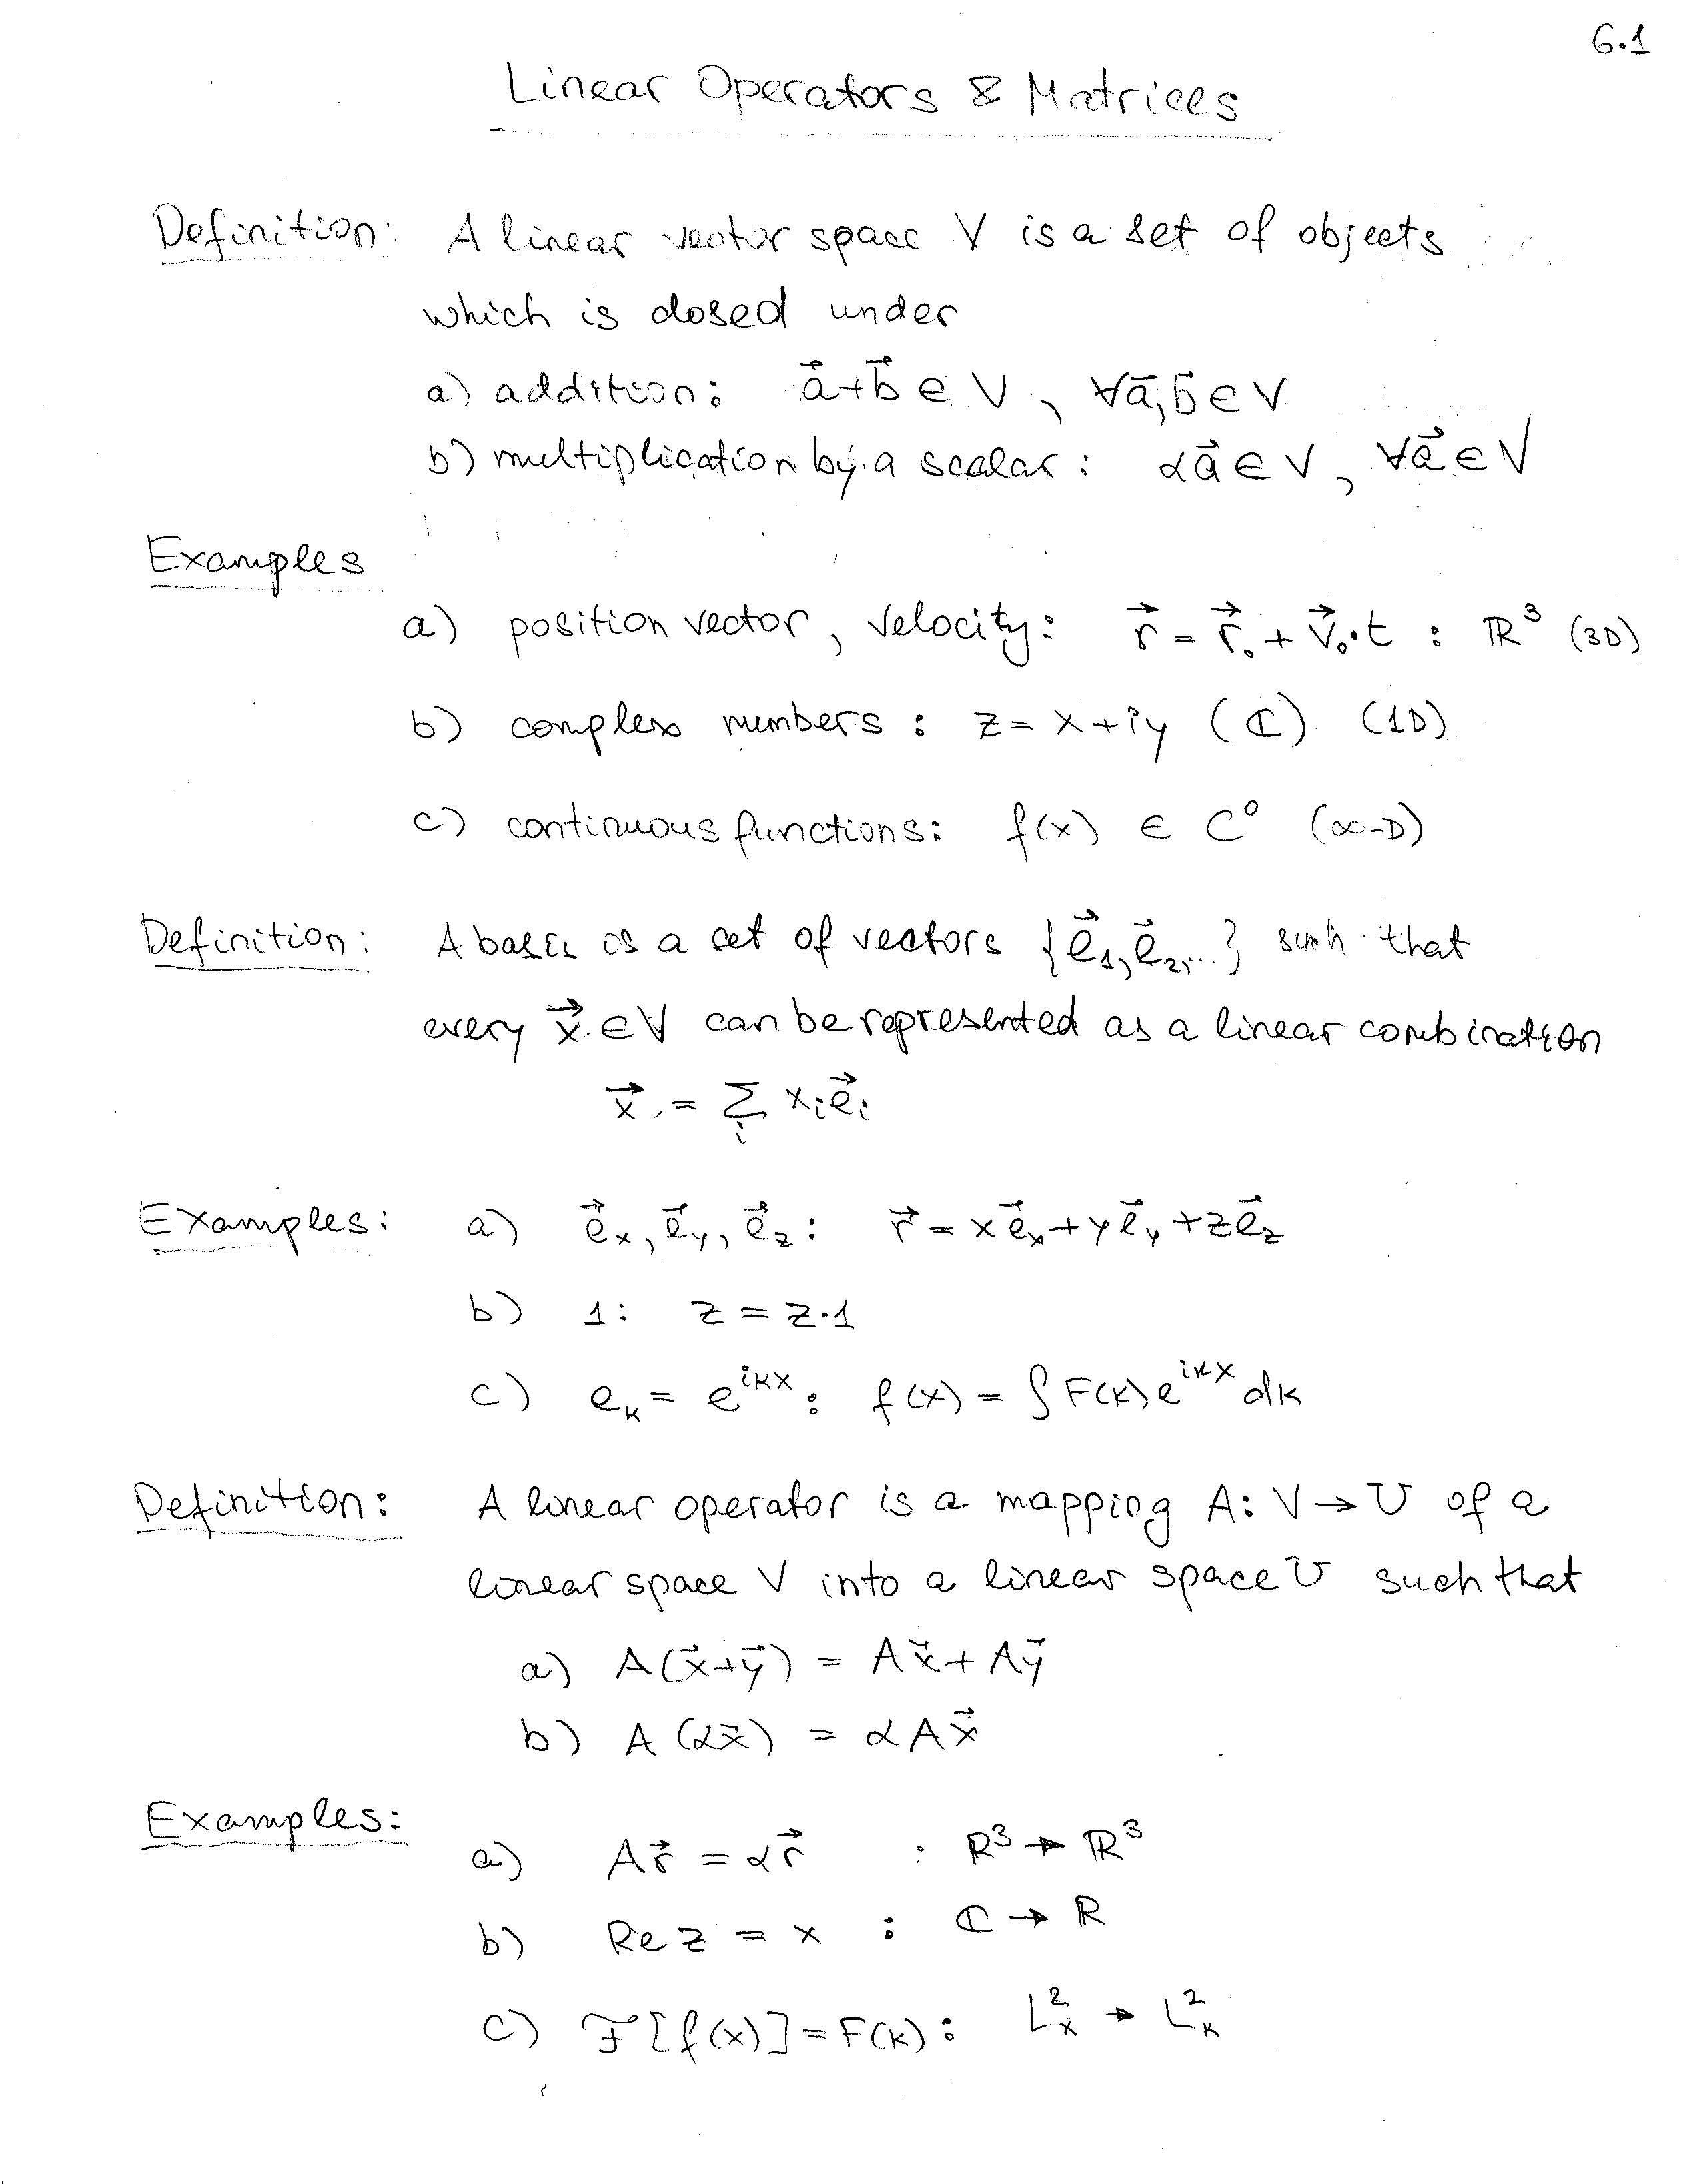 6.1
Linear Operators & Matrices
Definition: A linear vector space V is a set of objects
which is closed under
a) addition: a⃗+b⃗ ∈ V, ∀a⃗,b⃗ ∈ V
b) multiplication by a scalar: αa⃗ ∈ V, ∀a⃗ ∈ V
Examples
a) position vector, velocity: r⃗ = r⃗₀ + v⃗₀·t : ℝ³ (3D)
b) complex numbers: z = x + iy (ℂ) (1D)
c) continuous functions: f(x) ∈ C⁰ (∞-D)
Definition: A basis is a set of vectors {e⃗₁, e⃗₂,...} such that
every x⃗ ∈ V can be represented as a linear combination
x⃗ = ∑ᵢ xᵢe⃗ᵢ
Examples: a) e⃗ₓ, e⃗_y, e⃗_z: r⃗ = xe⃗ₓ + ye⃗_y + ze⃗_z
b) 1: z = z·1
c) e_k = e^{ikx}: f(x) = ∫F(k)e^{ikx}dk
Definition: A linear operator is a mapping A: V → U of a
linear space V into a linear space U such that
a) A(x⃗+y⃗) = Ax⃗ + Ay⃗
b) A(αx⃗) = αAx⃗
Examples:
a) Ar⃗ = αr⃗ : ℝ³ → ℝ³
b) Re z = x : ℂ → ℝ
c) ℱ[f(x)] = F(k): L²ₓ → L²_k